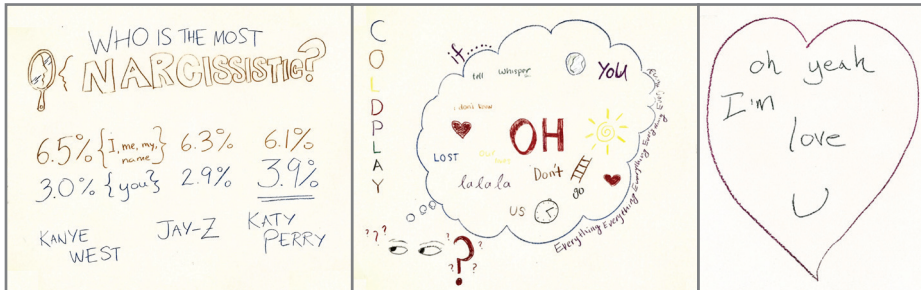 WHO IS THE MOST
NARCISSISTIC?
6.5% {I, me, my, name} 6.3% 6.1%
3.0% {you} 2.9% 3.9%
KANYE WEST
JAY-Z
KATY PERRY
COLDPLAY
if......
tell whisper
YOU
i don't know
OH
LOST
la la la
Don't
go
US
Everything Everything Everything Everything
???
?
?
?
?
oh yeah
I'm
love
U